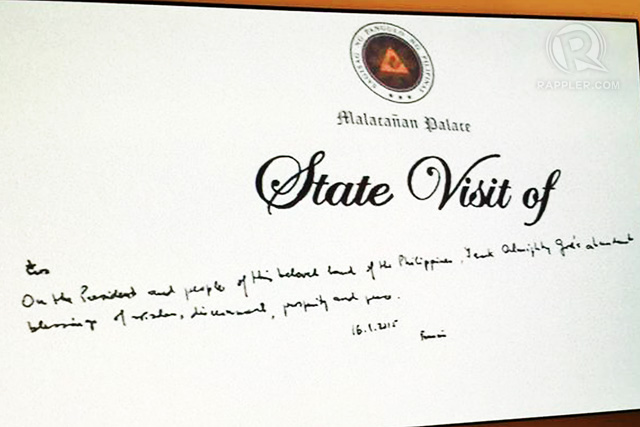 SAGISAG NG PANGULO NG PILIPINAS
R
RAPPLER.COM
Malacañan Palace
State Visit of
On the President and people of this beloved land of the Philippines, I ask Almighty God's abundant
blessings of wisdom, discernment, prosperity and peace.
16.1.2015